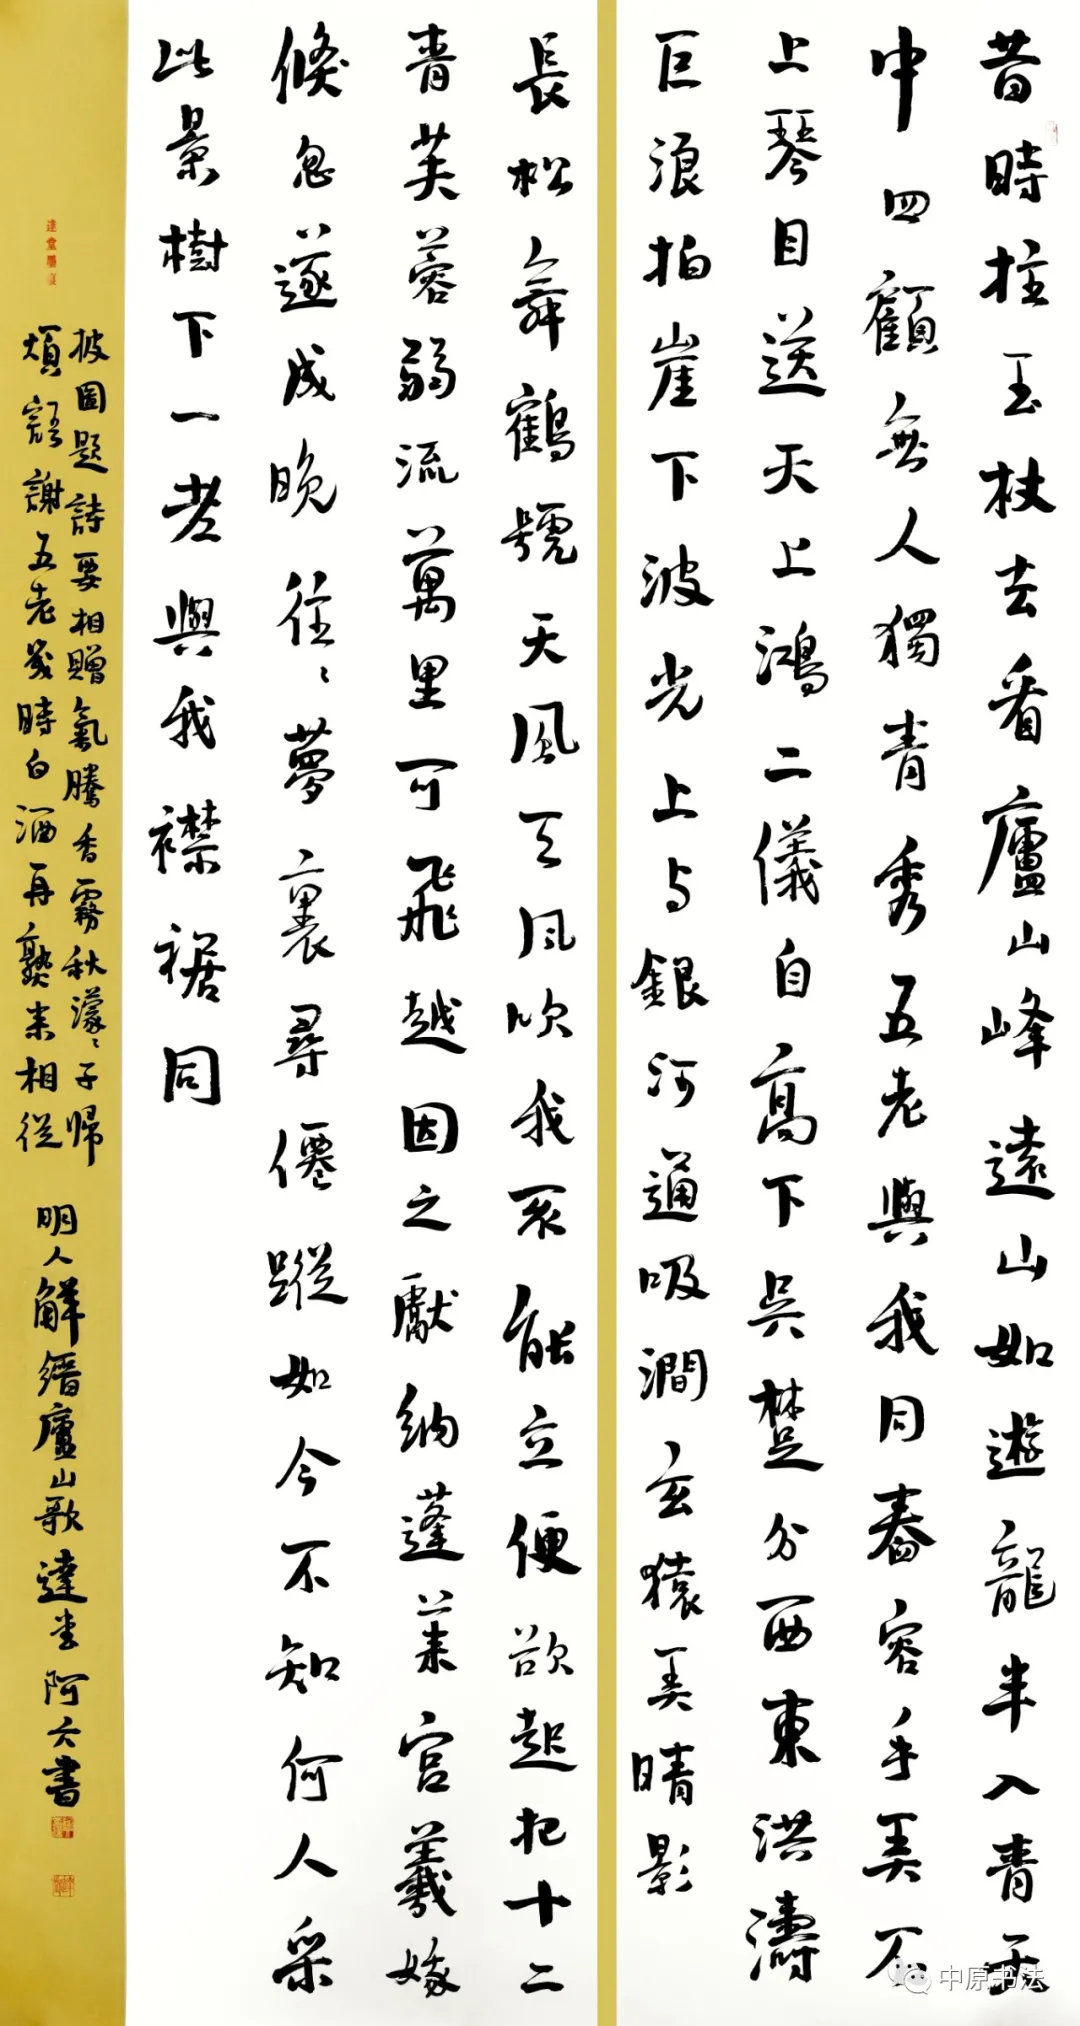 昔時拄玉杖去看廬山峰遠山如遊龍半入青天
中四顧無人獨青秀五老與我同舂容手弄石
上琴目送天上鴻二儀自高下吳楚分西東洪濤
巨浪拍崖下波光上與銀河通吸澗玄猿弄晴影
長松舞鶴號天風天風吹我不能立便欲起把十二
青芙蓉弱流萬里可飛越因之獻納蓬萊宮羲娥
倏忽遂成晚往〻夢裏尋僊蹤如今不知何人采
此景樹下一老與我襟裾同
披圖題詩要相贈氣騰香霧秋濛〻子歸
煩語謝五老幾時白酒再熟來相從
明人解縉廬山歌 達堂阿六書
達堂墨
中原书法